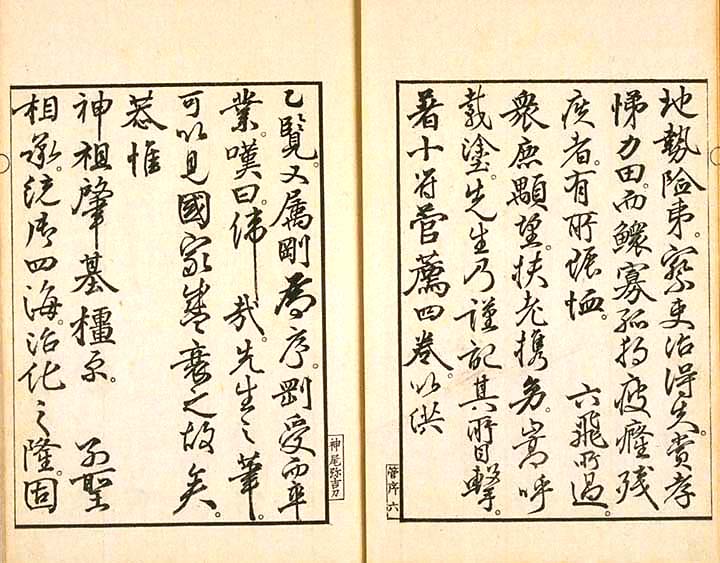 地勢險夷。察吏治得失。賞孝
悌力田。而鰥寡孤独疲癃残
疾者。有所賑恤。六飛所過。
衆庶顒望。扶老携幼。嵩呼
載塗。先生乃謹記其所目撃。
著十符菅薦四巻。以供
菅序 六
乙覧。又属剛為序。剛受而卒
業。嘆曰。偉哉。先生之筆。
可以見國家盛衰之故矣。
恭惟
神祖肇基橿原。列聖
相承。統御四海。治化之隆。固
神尾弥吉刀